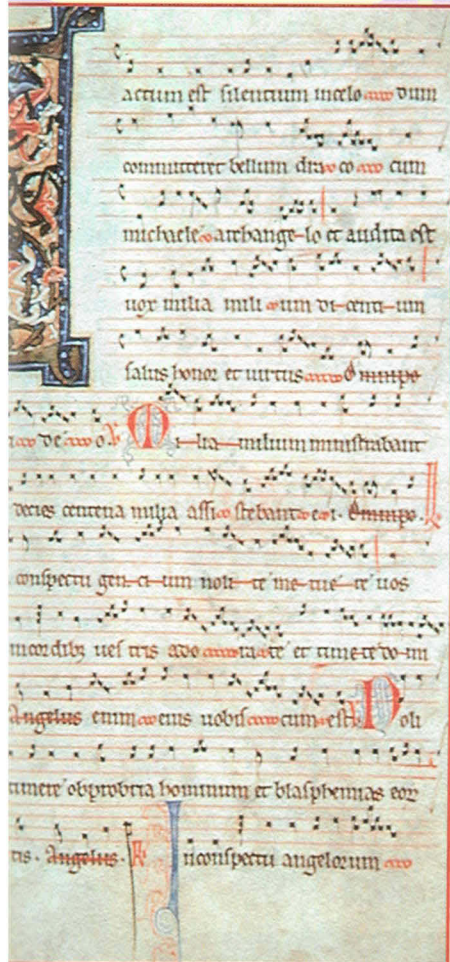 actum est silentium in celo dum
committeret bellum draco cum
michaele archangelo et audita est
uox milia milium dicentium
salus honor et uirtus Omnipo
deo Milia milium ministrabant
decies centena milia assistebant ei. Omnipo
conspectu gencium nolite metuete uos
in cordib; uestris adorate et timete domi
Angelus enim eius uobiscum est Noli
timere obprobria hominum et blasphemias eor
tis. Angelus. In conspectu angelorum